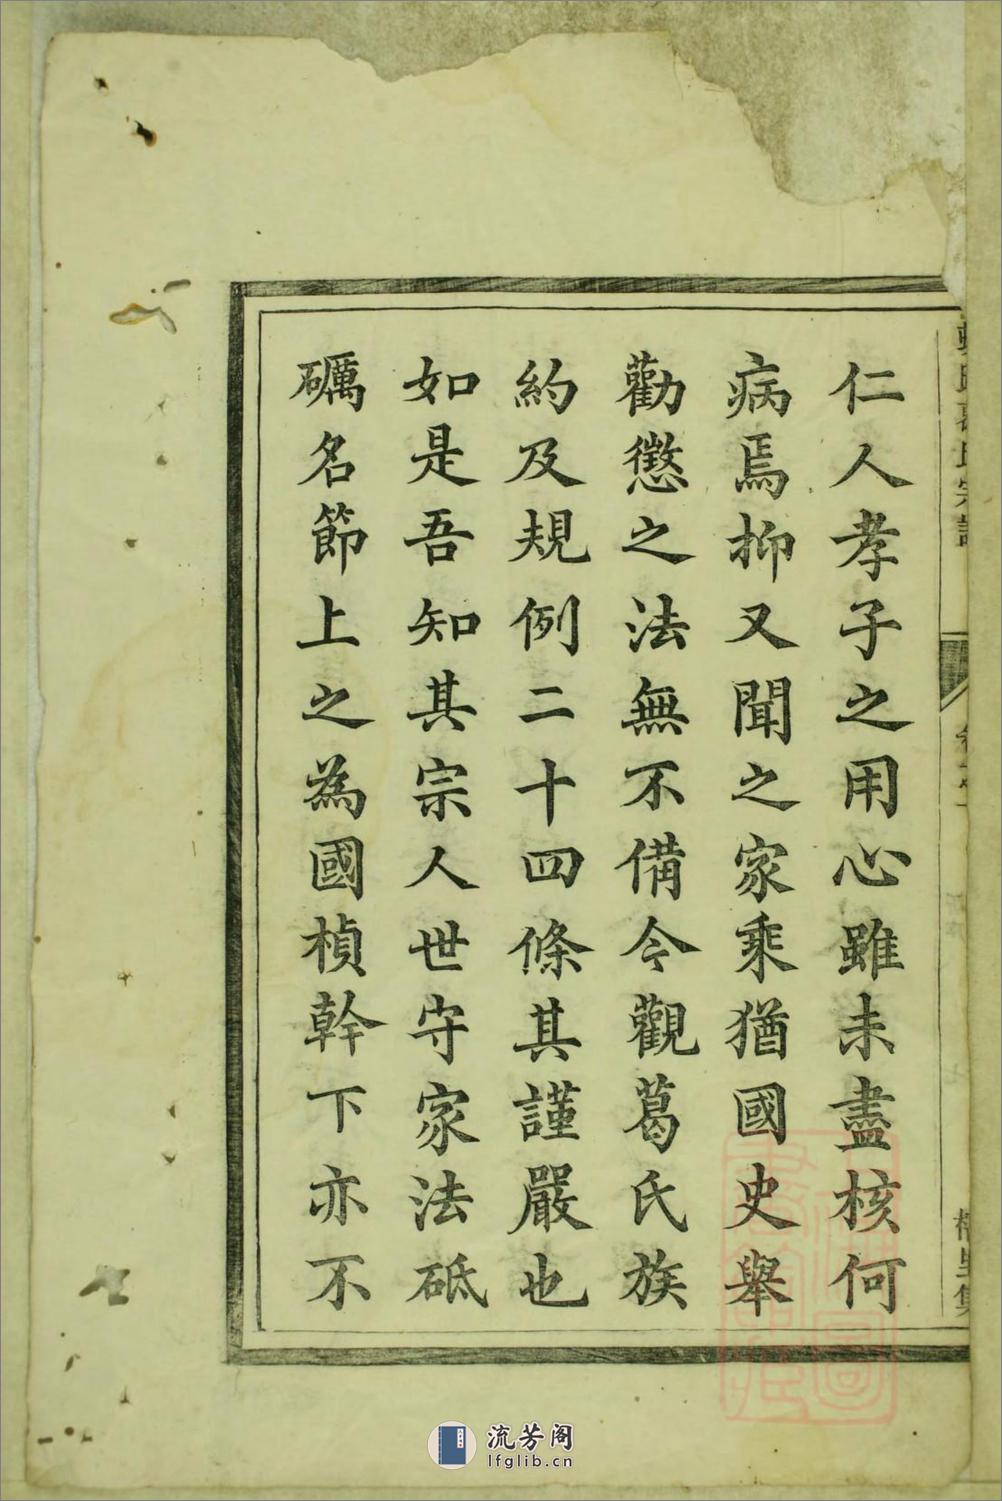 仁人孝子之用心雖未盡核何
病焉抑又聞之家乘猶國史舉
勸懲之法無不備今觀葛氏族
約及規例二十四條其謹嚴也
如是吾知其宗人世守家法砥
礪名節上之為國楨幹下亦不
流芳阁
lfglib.cn